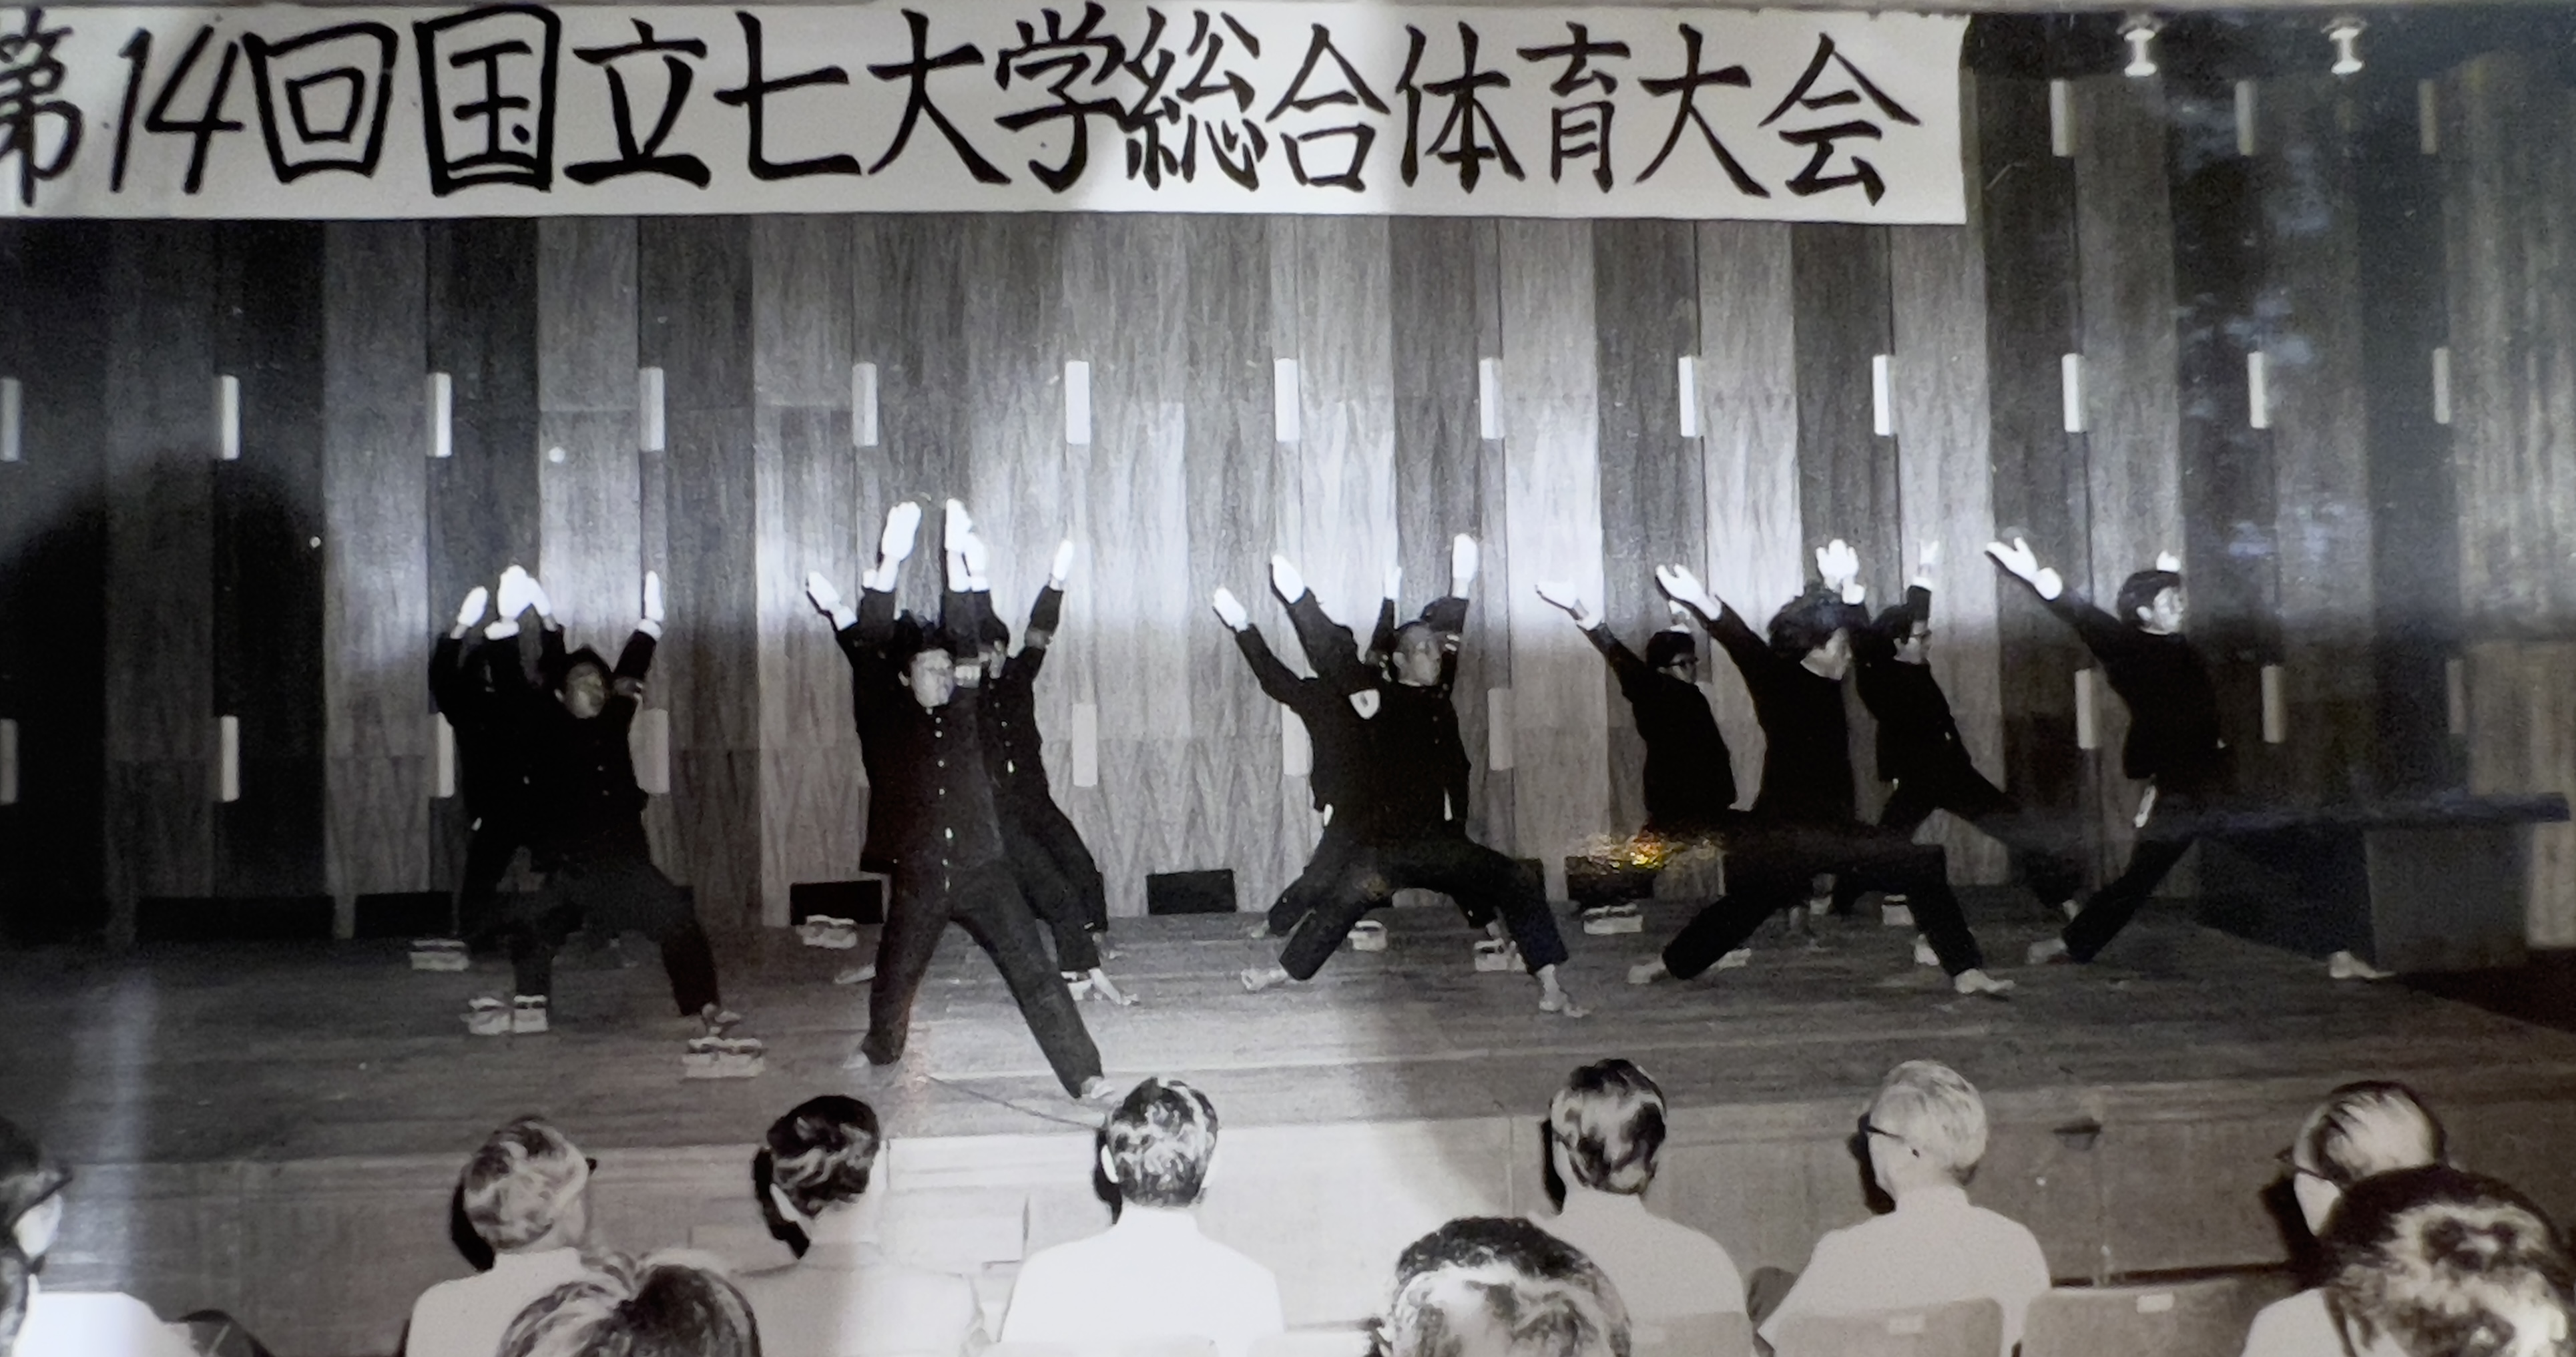 第14回国立七大学総合体育大会